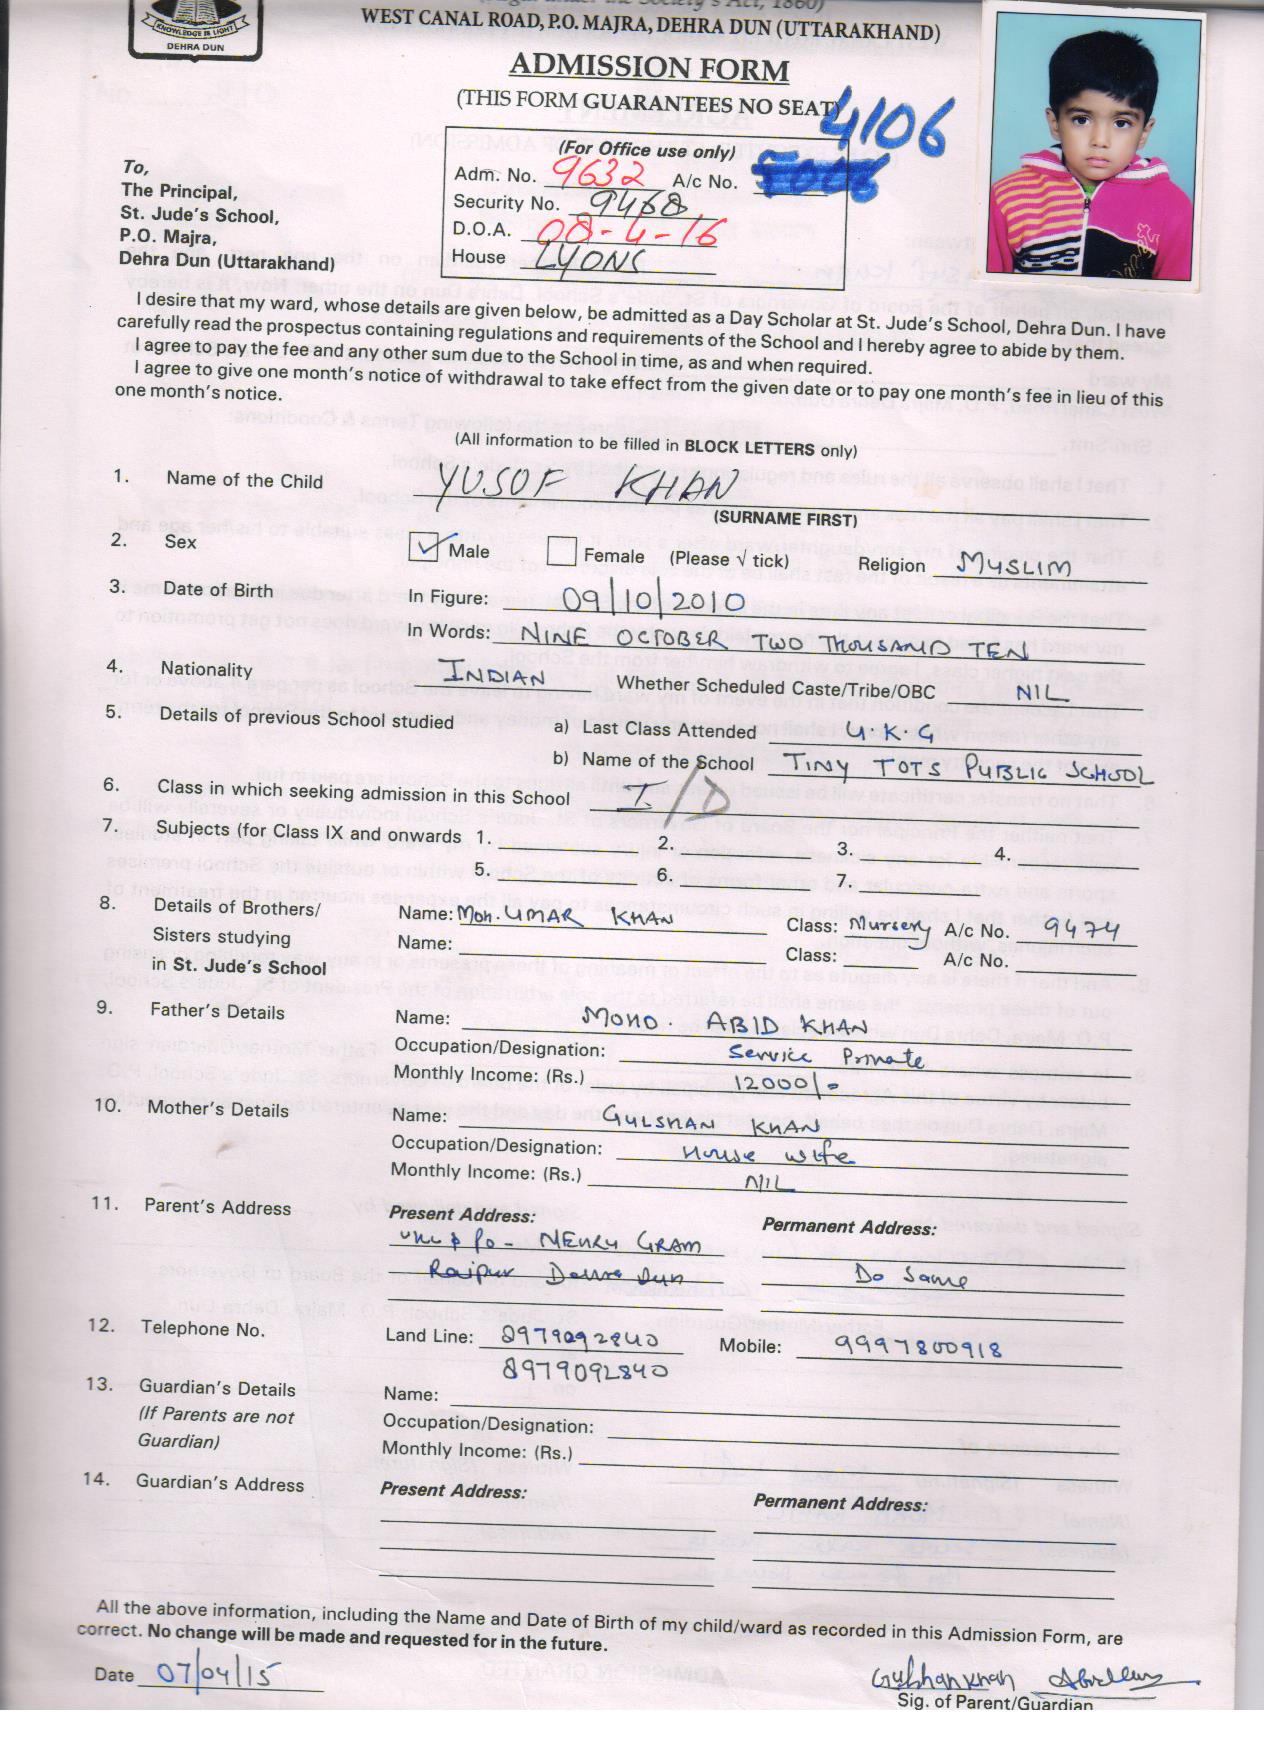 KNOWLEDGE IS LIGHT
DEHRA DUN
WEST CANAL ROAD, P.O. MAJRA, DEHRA DUN (UTTARAKHAND)
ADMISSION FORM
(THIS FORM GUARANTEES NO SEAT)
4106
To,
The Principal,
St. Jude's School,
P.O. Majra,
Dehra Dun (Uttarakhand)
(For Office use only)
Adm. No. 9632 A/c No.
Security No. 9468
D.O.A. 08-4-16
House LYONS
I desire that my ward, whose details are given below, be admitted as a Day Scholar at St. Jude's School, Dehra Dun. I have
carefully read the prospectus containing regulations and requirements of the School and I hereby agree to abide by them.
I agree to pay the fee and any other sum due to the School in time, as and when required.
I agree to give one month's notice of withdrawal to take effect from the given date or to pay one month's fee in lieu of this
one month's notice.
(All information to be filled in BLOCK LETTERS only)
1. Name of the Child YUSUF KHAN
(SURNAME FIRST)
2. Sex Male Female (Please √ tick) Religion MUSLIM
3. Date of Birth In Figure: 09/10/2010
In Words: NINE OCTOBER TWO THOUSAND TEN
4. Nationality INDIAN Whether Scheduled Caste/Tribe/OBC NIL
5. Details of previous School studied a) Last Class Attended U.K.G
b) Name of the School TINY TOTS PUBLIC SCHOOL
6. Class in which seeking admission in this School I/D
7. Subjects (for Class IX and onwards 1. 2. 3. 4.
5. 6. 7.
8. Details of Brothers/ Name: Moh. UMAR KHAN Class: Nursery A/c No. 9474
Sisters studying Name: Class: A/c No.
in St. Jude's School
9. Father's Details Name: MOHD. ABID KHAN
Occupation/Designation: Service Private
Monthly Income: (Rs.) 12000/-
10. Mother's Details Name: GULSHAN KHAN
Occupation/Designation: House wife
Monthly Income: (Rs.) NIL
11. Parent's Address Present Address: Permanent Address:
& Po- NEHRU GRAM
Raipur Dehra Dun Do Same
12. Telephone No. Land Line: 8979092840 Mobile: 9997800918
8979092840
13. Guardian's Details Name:
(If Parents are not Occupation/Designation:
Guardian) Monthly Income: (Rs.)
14. Guardian's Address Present Address: Permanent Address:
All the above information, including the Name and Date of Birth of my child/ward as recorded in this Admission Form, are
correct. No change will be made and requested for in the future.
Date 07/04/15 Gulshan khan
Sig. of Parent/Guardian